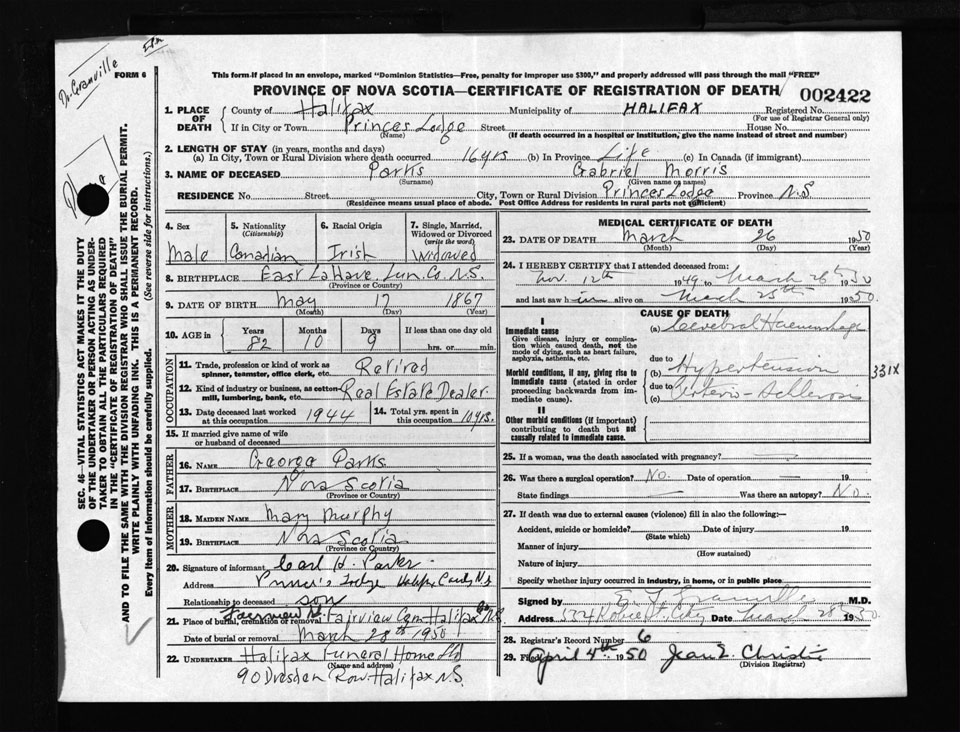 Dr. Granville
FORM 6
This form if placed in an envelope, marked "Dominion Statistics—Free, penalty for improper use $300," and properly addressed will pass through the mail "FREE"
PROVINCE OF NOVA SCOTIA—CERTIFICATE OF REGISTRATION OF DEATH
002422
1. PLACE OF DEATH
County of Halifax Municipality of HALIFAX Registered No.
(For use of Registrar General only)
If in City or Town Princes Lodge Street House No.
(Name) (If death occurred in a hospital or institution, give the name instead of street and number)
2. LENGTH OF STAY (in years, months and days)
(a) In City, Town or Rural Division where death occurred 16 yrs (b) In Province Life (c) In Canada (if immigrant)
3. NAME OF DECEASED Parks Gabriel Morris
(Surname) (Given name or names)
RESIDENCE No. Street City, Town or Rural Division Princes Lodge Province N.S.
(Residence means usual place of abode. Post Office Address for residents in rural parts not sufficient)
SEC. 46—VITAL STATISTICS ACT MAKES IT THE DUTY
OF THE UNDERTAKER OR PERSON ACTING AS UNDER-
TAKER TO OBTAIN ALL THE PARTICULARS REQUIRED
IN THE "CERTIFICATE OF REGISTRATION OF DEATH"
AND TO FILE THE SAME WITH THE DIVISION REGISTRAR WHO SHALL ISSUE THE BURIAL PERMIT.
WRITE PLAINLY WITH UNFADING INK. THIS IS A PERMANENT RECORD.
Every item of information should be carefully supplied. (See reverse side for instructions.)
4. Sex 5. Nationality (Citizenship) 6. Racial Origin 7. Single, Married, Widowed or Divorced (write the word)
Male Canadian Irish Widowed
8. BIRTHPLACE East LaHave, Lun. Co. N.S.
(Province or Country)
9. DATE OF BIRTH May 17 1867
(Month) (Day) (Year)
10. AGE in Years Months Days If less than one day old
82 10 9 hrs. or min.
OCCUPATION
11. Trade, profession or kind of work as spinner, teamster, office clerk, etc. Retired
12. Kind of industry or business, as cotton-mill, lumbering, bank, etc. Real Estate Dealer
13. Date deceased last worked at this occupation 1944 14. Total yrs. spent in this occupation 10 yrs.
15. If married give name of wife or husband of deceased
FATHER
16. NAME George Parks
17. BIRTHPLACE Nova Scotia
(Province or Country)
MOTHER
18. MAIDEN NAME Mary Murphy
19. BIRTHPLACE Nova Scotia
(Province or Country)
20. Signature of informant Carl H. Parks
Address Prince's Lodge Halifax County N.S.
Relationship to deceased son
21. Place of burial, cremation or removal Fairview Cem Halifax
Date of burial or removal March 28th 1950
22. UNDERTAKER Halifax Funeral Home Ltd
(Name and address)
90 Dresden Row. Halifax N.S.
MEDICAL CERTIFICATE OF DEATH
23. DATE OF DEATH March 26 1950
(Month) (Day) (Year)
24. I HEREBY CERTIFY that I attended deceased from:
Nov. 12th 1949 to March 26th 1950
and last saw him alive on March 25th 1950.
CAUSE OF DEATH
I
Immediate cause
Give disease, injury or complication which caused death, not the mode of dying, such as heart failure, asphyxia, asthenia, etc.
(a) Cerebral Haemorrhage
due to
Morbid conditions, if any, giving rise to immediate cause (stated in order proceeding backwards from immediate cause).
(b) Hypertension
due to
(c) Arterio-Sclerosis
331X
II
Other morbid conditions (if important) contributing to death but not causally related to immediate cause.
25. If a woman, was the death associated with pregnancy?
26. Was there a surgical operation? No. Date of operation — 19
State findings Was there an autopsy? No.
27. If death was due to external causes (violence) fill in also the following:—
Accident, suicide or homicide? Date of injury 19
(State which)
Manner of injury
(How sustained)
Nature of injury
Specify whether injury occurred in industry, in home, or in public place
Signed by E. F. Granville M.D.
City Date March 28 1950
28. Registrar's Record Number 6
29. Filed April 4th 1950 Jean E. Christie
(Division Registrar)